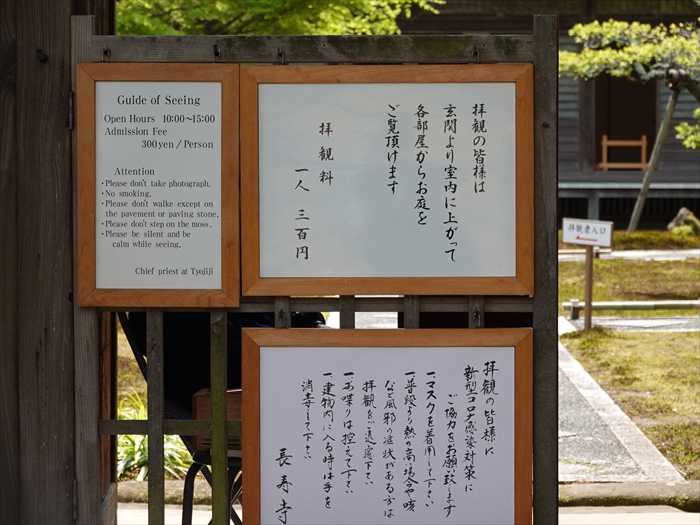 Guide of Seeing
Open Hours 10:00~15:00
Admission Fee
300yen / Person
Attention
・Please don't take photograph.
・No smoking.
・Please don't walke except on
the pavement or paving stone.
・Please don't step on the moss.
・Please be silent and be
calm while seeing.
Chief priest at Tyojiji
拝観の皆様は
玄関より室内に上がって
各部屋からお庭を
ご覧頂けます
拝観料
一人 三百円
拝観者入口
拝観の皆様に
新型コロナ感染対策に
ご協力をお願い致します
一マスクを着用して下さい
一普段より熱の高い場合や咳
など風邪の症状がある方は
拝観をご遠慮下さい
一お喋りは控えて下さい
一建物内に入る時は手を
消毒して下さい
長寿寺